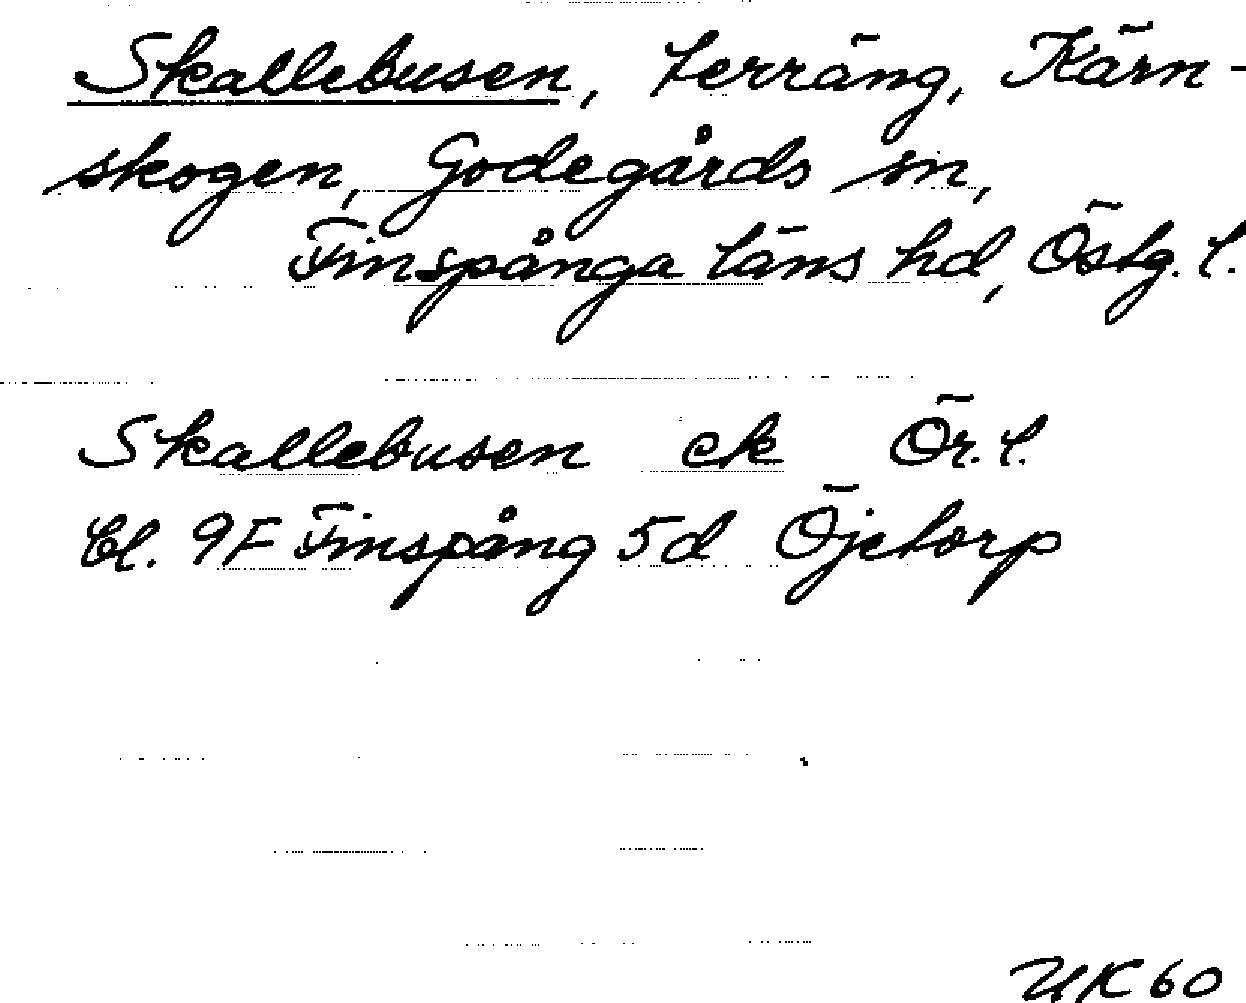 Skallebusen, terräng, Kärn-
skogen, Godegårds sn,
Finspånga läns hd, Östg. l.
Skallebusen ek Ör. l.
Bl. 9F Finspång 5d Öjetorp
UK 60